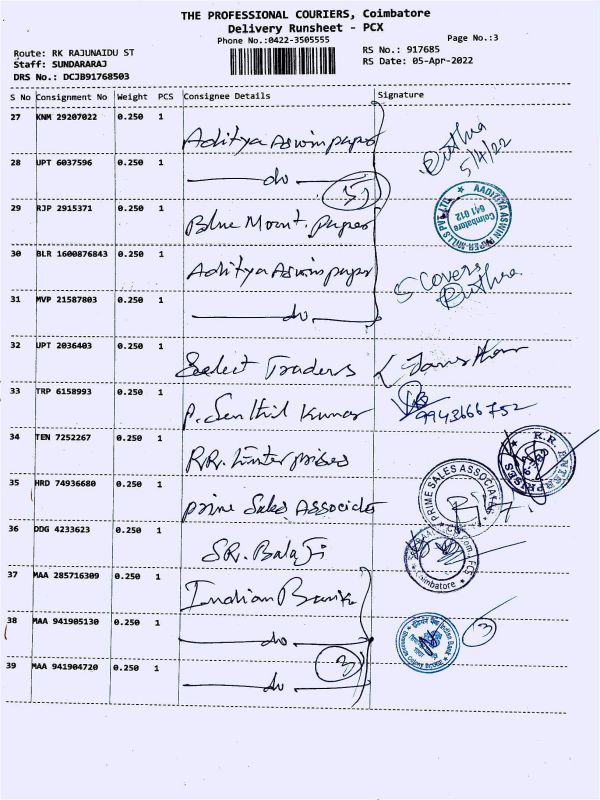 THE PROFESSIONAL COURIERS, Coimbatore
Delivery Runsheet - PCX
Phone No.:0422-3505555
Page No.:3
Route: RK RAJUNAIDU ST
RS No.: 917685
Staff: SUNDARARAJ
RS Date: 05-Apr-2022
DRS No.: DCJB91768503
S No Consignment No Weight PCS Consignee Details Signature
27 KNM 29207022 0.250 1 Aditya Aswin paper
28 UPT 6037596 0.250 1 do
5/4/22
29 RJP 2915371 0.250 1 Blue Mount. paper
AADITYA ASWIN PAPER MILLS PVT. LTD. Coimbatore 641 012
30 BLR 1600876843 0.250 1 Aditya Aswin paper
5 Covers
31 MVP 21587803 0.250 1 do
32 UPT 2036403 0.250 1 Select Traders
33 TRP 6158993 0.250 1 P. Senthil Kumar
9943666752
34 TEN 7252267 0.250 1 R.R. Enterprises
R.R. ENTERPRISES
35 HRD 74936680 0.250 1 prime Sales Associates
PRIME SALES ASSOCIATES
36 DDG 4233623 0.250 1 SR. Balaji
Coimbatore
37 MAA 285716309 0.250 1 Indian Bank
38 MAA 941905130 0.250 1 do
3
39 MAA 941904720 0.250 1 do
3